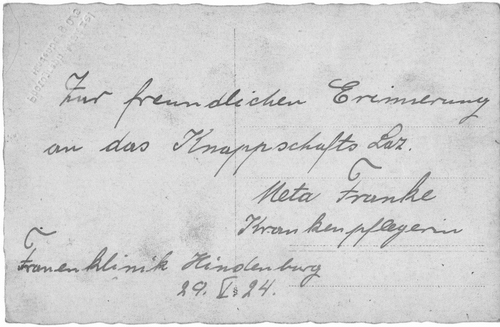 Zur freundlichen Erinnerung
an das Knappschafts Laz.
Meta Franke
Krankenpflegerin
Frauenklinik Hindenburg
29. V. 24.